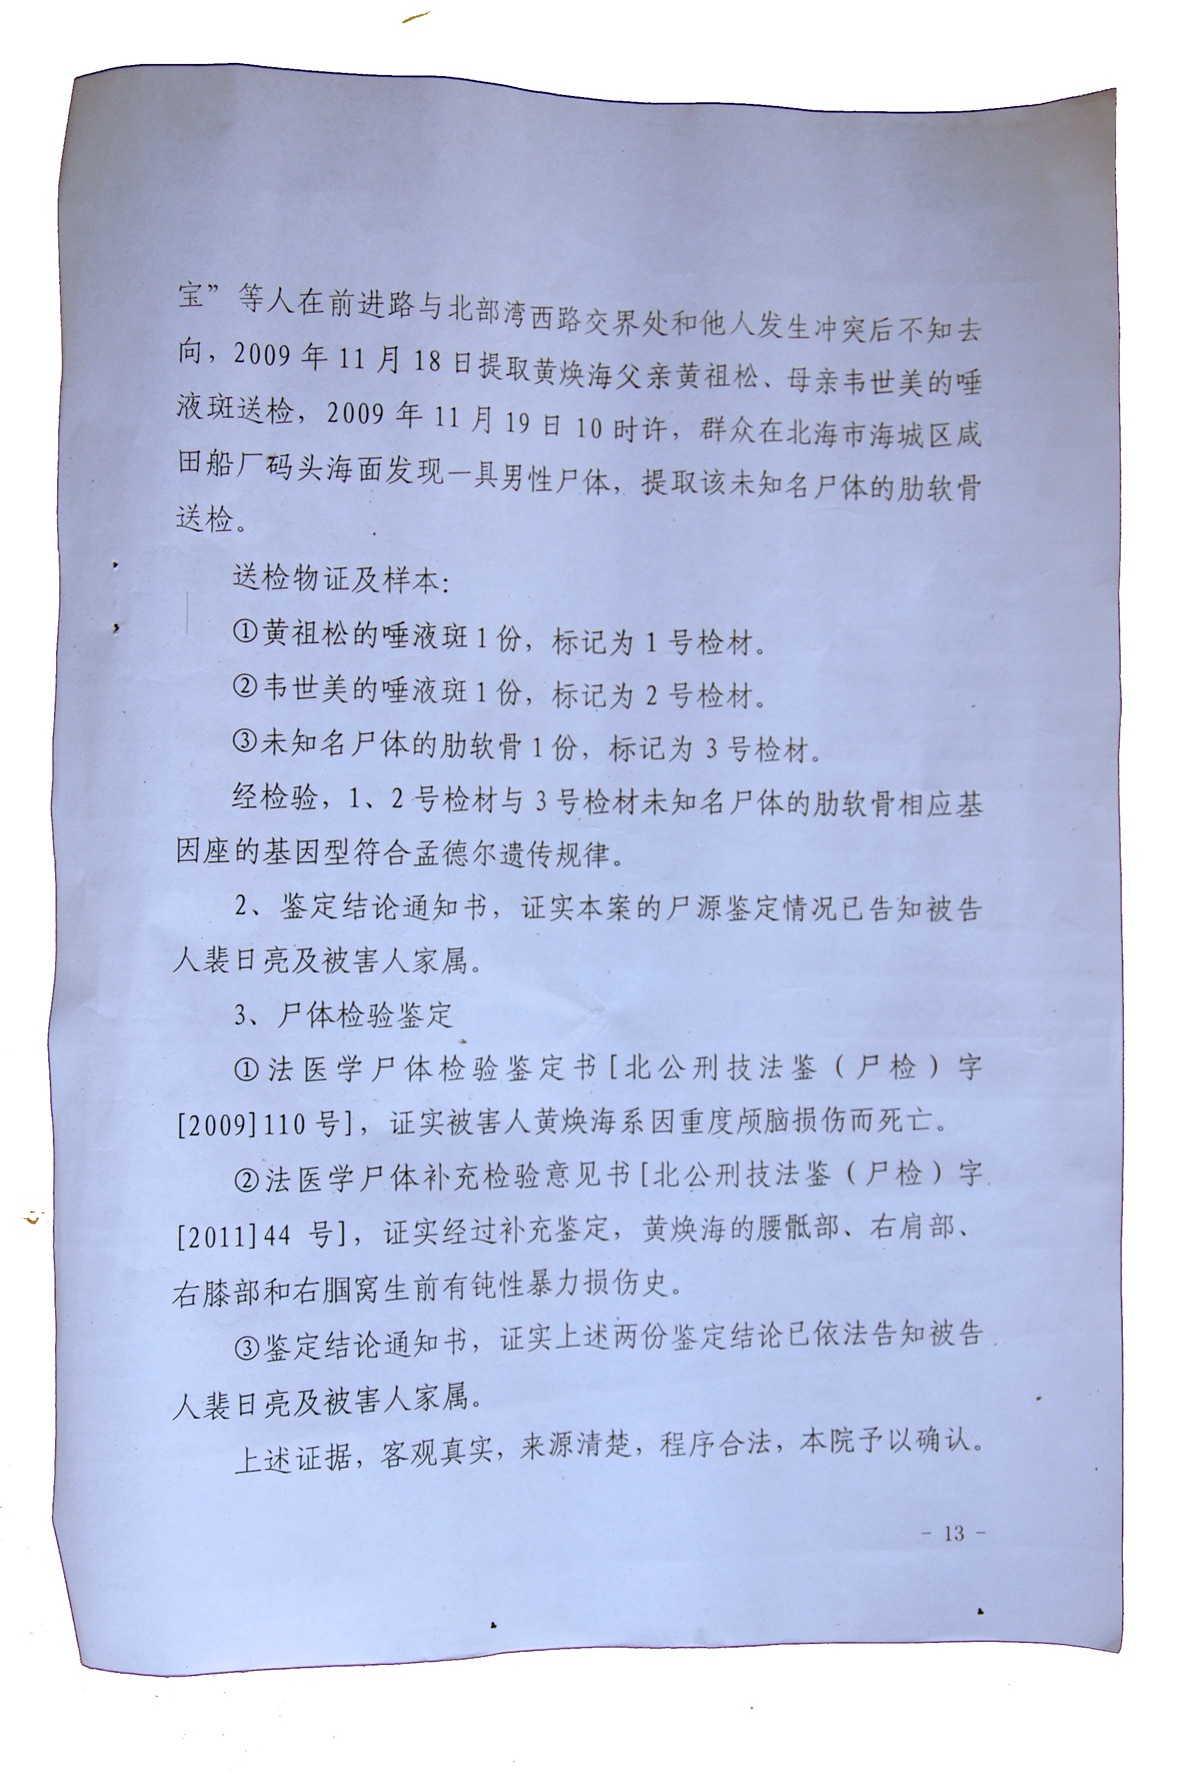 宝”等人在前进路与北部湾西路交界处和他人发生冲突后不知去
向，2009年11月18日提取黄焕海父亲黄祖松、母亲韦世美的唾
液斑送检，2009年11月19日10时许，群众在北海市海城区咸
田船厂码头海面发现一具男性尸体，提取该未知名尸体的肋软骨
送检。
送检物证及样本：
①黄祖松的唾液斑1份，标记为1号检材。
②韦世美的唾液斑1份，标记为2号检材。
③未知名尸体的肋软骨1份，标记为3号检材。
经检验，1、2号检材与3号检材未知名尸体的肋软骨相应基
因座的基因型符合孟德尔遗传规律。
2、鉴定结论通知书，证实本案的尸源鉴定情况已告知被告
人裴日亮及被害人家属。
3、尸体检验鉴定
①法医学尸体检验鉴定书[北公刑技法鉴（尸检）字
[2009]110号]，证实被害人黄焕海系因重度颅脑损伤而死亡。
②法医学尸体补充检验意见书[北公刑技法鉴（尸检）字
[2011]44 号]，证实经过补充鉴定，黄焕海的腰骶部、右肩部、
右膝部和右腘窝生前有钝性暴力损伤史。
③鉴定结论通知书，证实上述两份鉴定结论已依法告知被告
人裴日亮及被害人家属。
上述证据，客观真实，来源清楚，程序合法，本院予以确认。
- 13 -